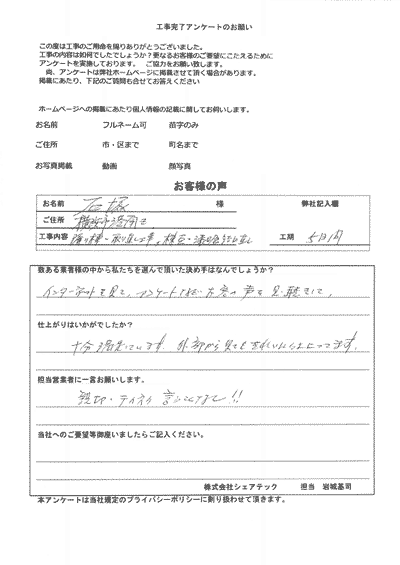 工事完了アンケートのお願い
この度は工事のご用命を賜りありがとうございました。
工事の内容は如何でしたでしょうか？更なるお客様のご要望にこたえるために
アンケートを実施しております。　ご協力をお願い致します。
尚、アンケートは弊社ホームページに掲載させて頂く場合があります。
掲載にあたり、下記のご質問も合せてお答えください
ホームページへの掲載にあたり個人情報の記載に関してお伺いします。
お名前　フルネーム可　苗字のみ
ご住所　市・区まで　町名まで
お写真掲載　動画　顔写真
お客様の声
お名前　石塚　様　弊社記入欄
ご住所　横浜市港南区
工事内容　工期　5日間
数ある業者様の中から私たちを選んで頂いた決め手はなんでしょうか？
インターネットを見て、アンケート
仕上がりはいかがでしたか？
十分満足しています。外部から見てもきれいに仕上ってます。
担当営業者に一言お願いします。
親切・ていねい 言うことなし!!
当社へのご要望等御座いましたらご記入ください。
株式会社シェアテック　担当　岩城基司
本アンケートは当社規定のプライバシーポリシーに則り扱わせて頂きます。